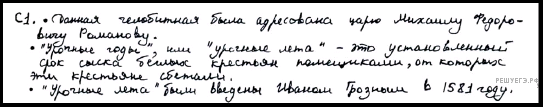 С1. • Данная челобитная была адресована царю Михаилу Федоро-
вичу Романову.
• "Урочные годы", или "урочные лета" - это установленный
срок сыска беглых крестьян помещиками, от которых
эти крестьяне сбежали.
• "Урочные лета" были введены Иваном Грозным в 1581 году.
РЕШУЕГЭ.РФ